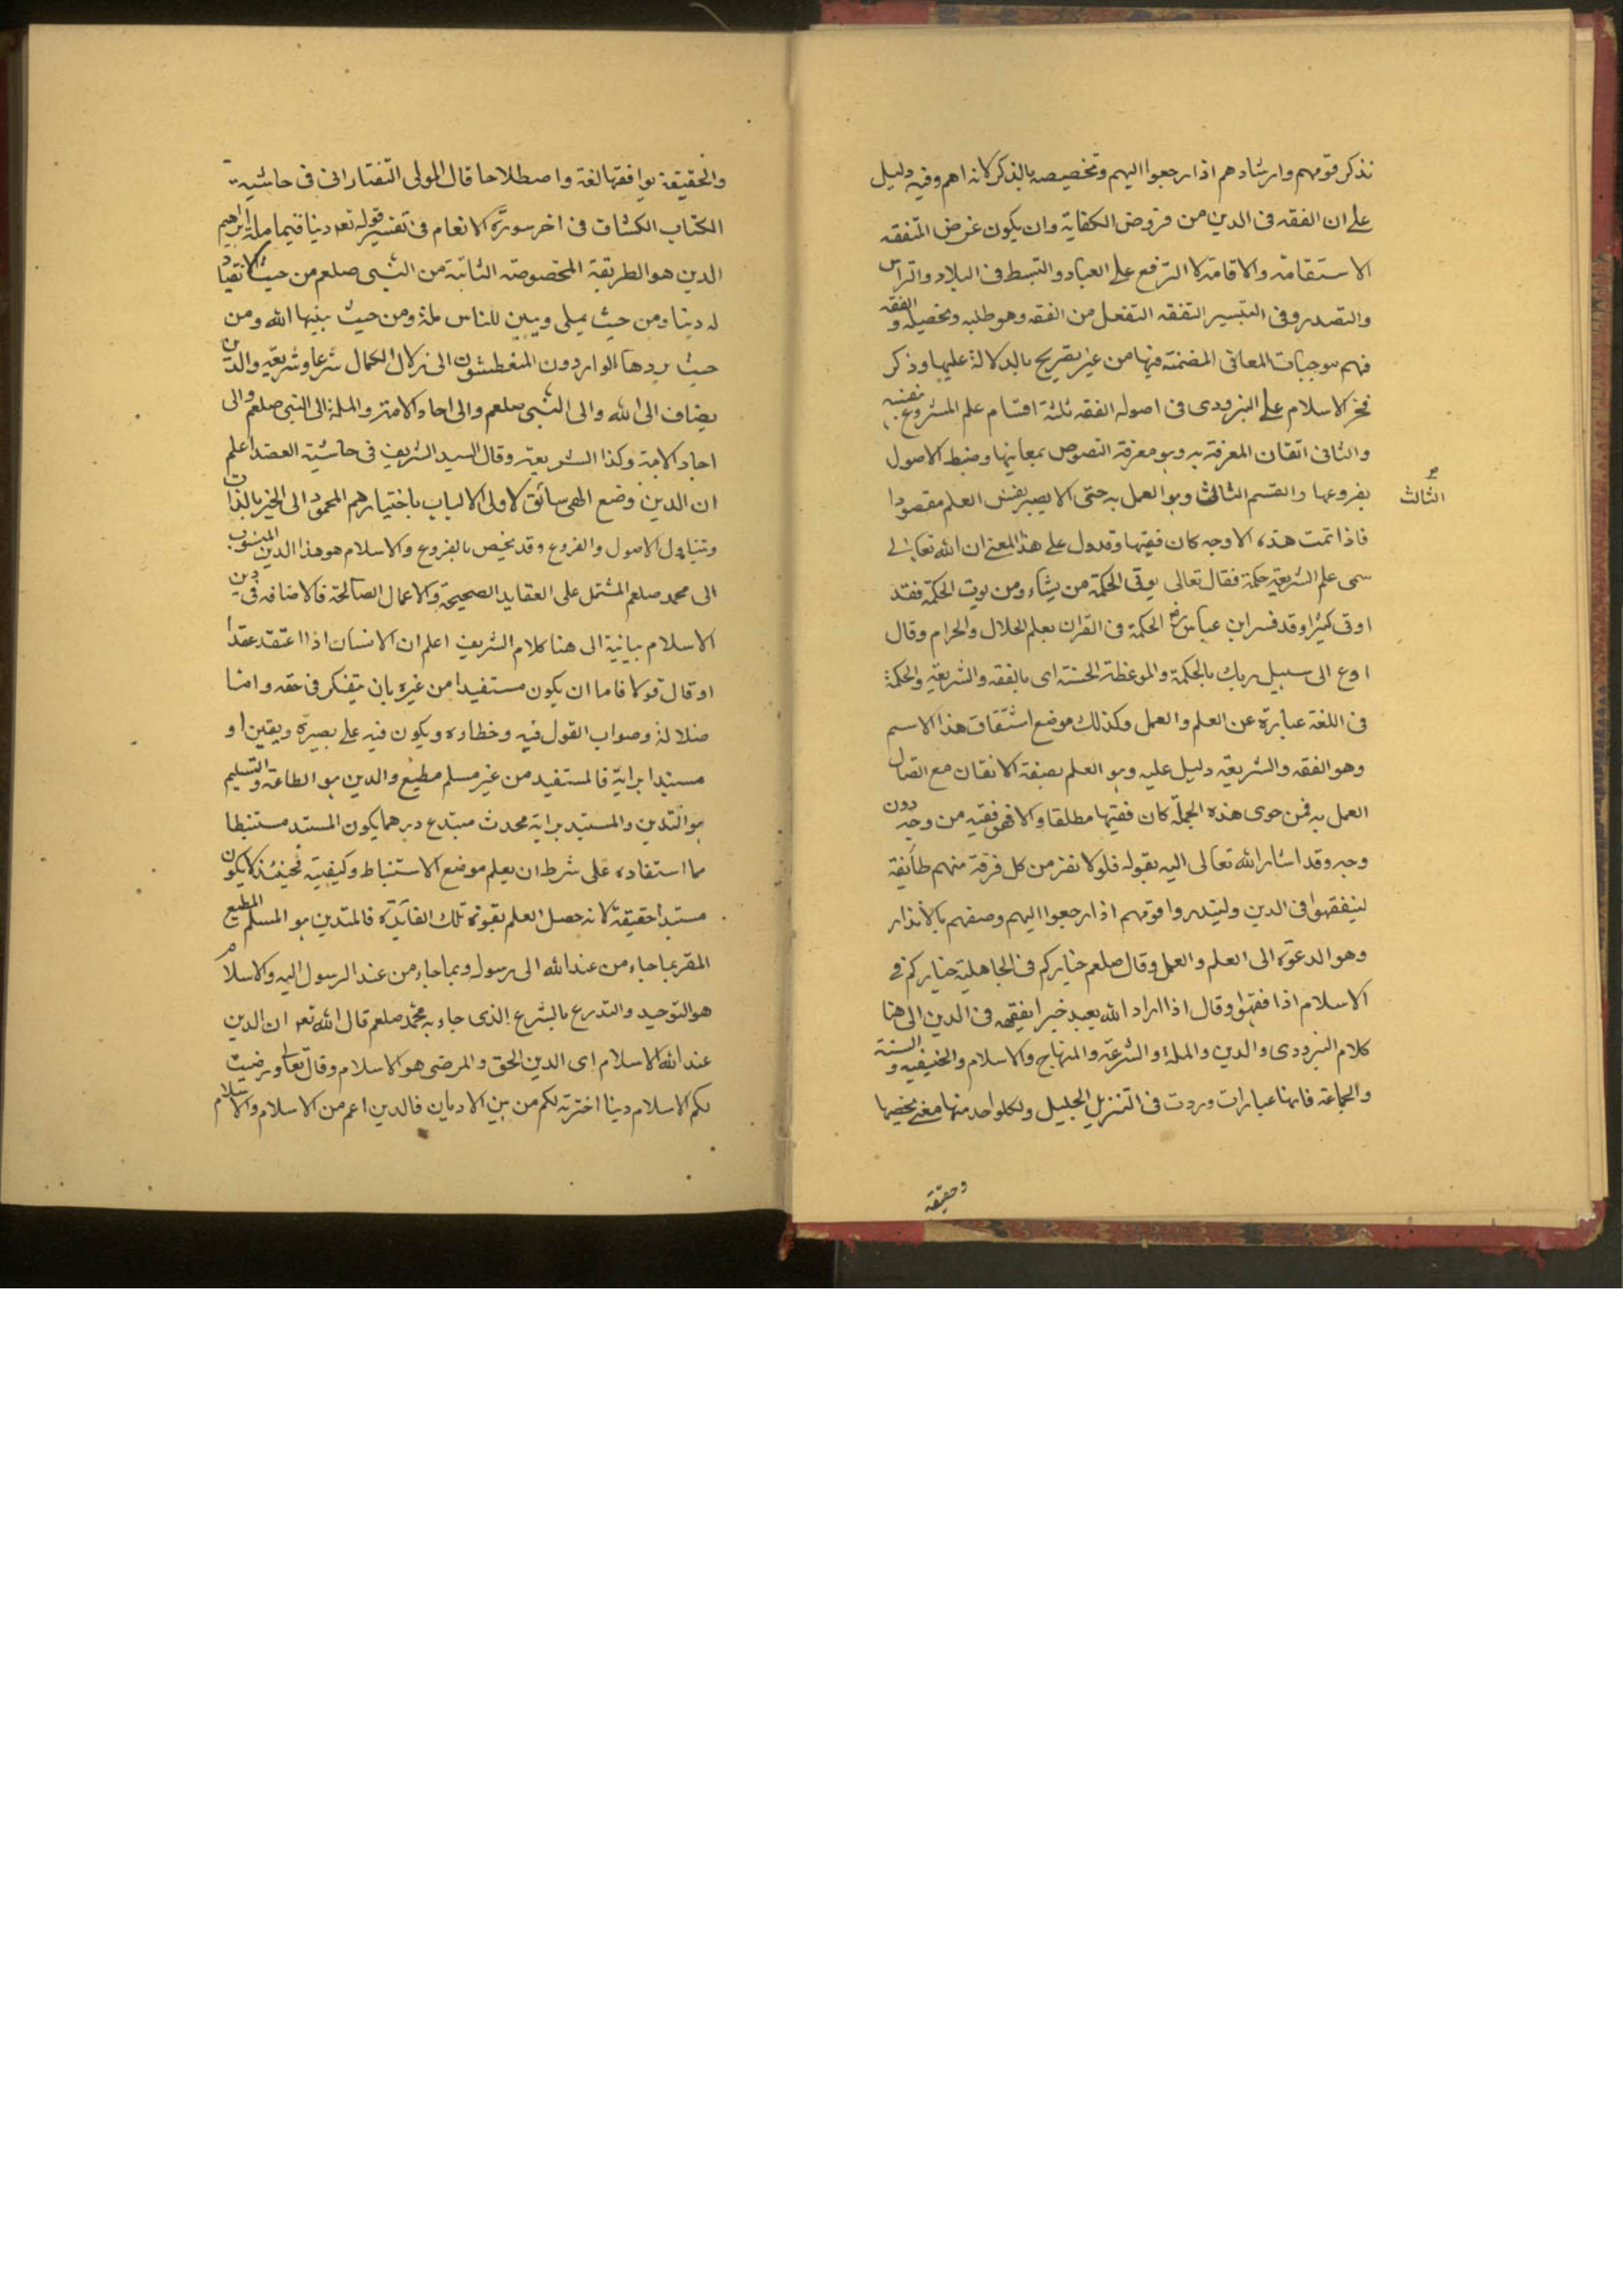 نذكر قومهم وارشادهم اذا رجعوا اليهم وتخصيصه بالذكر لانه اهم وفيه دليل
على ان الفقه فى الدين من فروض الكفاية وان يكون غرض المتفقه
الاستقامة والاقامة لا الترفع على العباد والتبسط فى البلاد والتراس
والتصدر وفى التيسير التفقه التفعل من الفقه وهو طلبه وتحصيله والفقه
فهم موجبات المعانى المضمنة فيها من غير تصريح بالدلالة عليها وذكر
فخر الاسلام على البزدوى فى اصوله الفقه ثلثة اقسام علم المشروع بنفسه
والثانى اتقان المعرفة به وهو معرفة النصوص بمعانيها وضبط الاصول
بفروعها والقسم الثالث وهو العمل به حتى لا يصير نفس العلم مقصودا
الثالث
فاذا تمت هذه الاوجه كان فقيها وقد دل على هذا المعنى ان الله تعالى
سمى علم الشريعة حكمة فقال تعالى يوتى الحكمة من يشاء ومن يوت الحكمة فقد
اوتى كثيرا وقد فسر ابن عباس رض الحكمة فى القران بعلم الحلال والحرام وقال
ادع الى سبيل ربك بالحكمة والموعظة الحسنة اى بالفقه والشريعة والحكمة
فى اللغة عبارة عن العلم والعمل وكذلك موضع اشتقاق هذا الاسم
وهو الفقه والشريعة دليل عليه وهو العلم بصفة الاتقان مع اتصال
العمل به فمن حوى هذه الجملة كان فقيها مطلقا والا فهو فقيه من وجه دون
وجه وقد اشار الله تعالى اليه بقوله فلولا نفر من كل فرقة منهم طائفة
ليتفقهوا فى الدين ولينذروا قومهم اذا رجعوا اليهم وصفهم بالانذار
وهو الدعوة الى العلم والعمل وقال صلعم خياركم فى الجاهلية خياركم فى
الاسلام اذا فقهوا وقال اذا اراد الله بعبد خيرا يفقهه فى الدين الى هنا
كلام البزدوى والدين والملة والشرعة والمنهاج والاسلام والحنيفية والسنة
والجماعة فانها عبارات وردت فى التنزيل الجليل ولكل واحد منها معنى يخصها
وحقيقة
والحقيقة يوافقها لغة واصطلاحا قال المولى التفتازانى فى حاشية
الكتاب الكشاف فى اخر سورة الانعام فى تفسير قوله تعه دينا قيما ملة ابراهيم
الدين هو الطريقة المخصوصة الثابتة من النبى صلعم من حيث الانقياد
له دينا ومن حيث يملى ويبين للناس ملة ومن حيث بينها الله ومن
حيث يردها الواردون المتعطشون الى زلال الكمال شرعا وشريعة والدين
يضاف الى الله والى النبى صلعم والى احاد الامة والملة الى النبى صلعم والى
احاد الامة وكذا الشريعة وقال السيد الشريف فى حاشية العضد اعلم
ان الدين وضع الهى سائق لاولى الالباب باختيارهم المحمود الى الخير بالذات
ويتناول الاصول والفروع وقد يخص بالفروع والاسلام هو هذا الدين المنسوب
الى محمد صلعم المشتمل على العقايد الصحيحة والاعمال الصالحة فالاضافة فى دين
الاسلام بيانية الى هنا كلام الشريف اعلم ان الانسان اذا اعتقد عقدا
او قال قولا فاما ان يكون مستفيدا من غيره بان يتفكر فى حقه
ضلالة وصواب القول فيه وخطاءه ويكون فيه على بصيرة ويقين او
مستبدا برايه فالمستفيد من غير مسلم مطيع والدين هو الطاعة والتسليم
هو التدين والمستبد برايه محدث مبتدع وربما يكون المستبد مستنبطا
مما استفاده على شرط ان يعلم موضع الاستنباط وكيفيته فحينئذ لا يكون
مستبدا حقيقة لانه حصل العلم بقوة تلك الفائدة فالمتدين هو المسلم المطيع
المقر بما جاء من عند الله الى رسوله وبما جاء من عند الرسول اليه والاسلام
هو التوحيد والتدرع بالشرع الذى جاء به محمد صلعم قال الله تعه ان الدين
عند الله الاسلام اى الدين الحق والمرضى هو الاسلام وقال تعا ورضيت
لكم الاسلام دينا اخترته لكم من بين الاديان فالدين اعم من الاسلام والاسلام